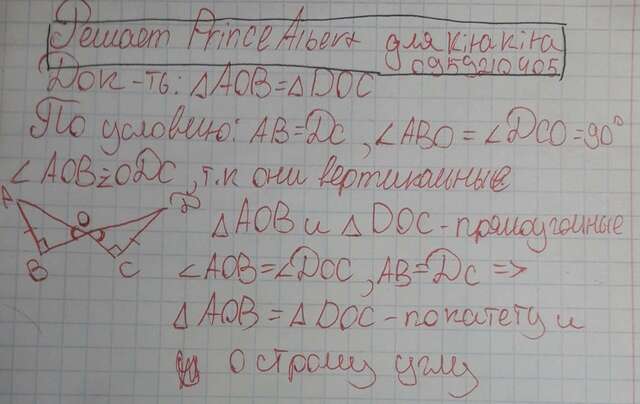 Решает Prince Albert для kirakira
0959210405
Док-ть: △AOB=△DOC
По условию: AB=Dc, ∠ABO=∠DCO=90°
∠AOB=ODC, т.к они вертикальные
A D
O
B C
△AOB и △DOC-прямоугольные
∠AOB=∠DOC, AB=Dc =>
△AOB=△DOC-по катету и
острому углу